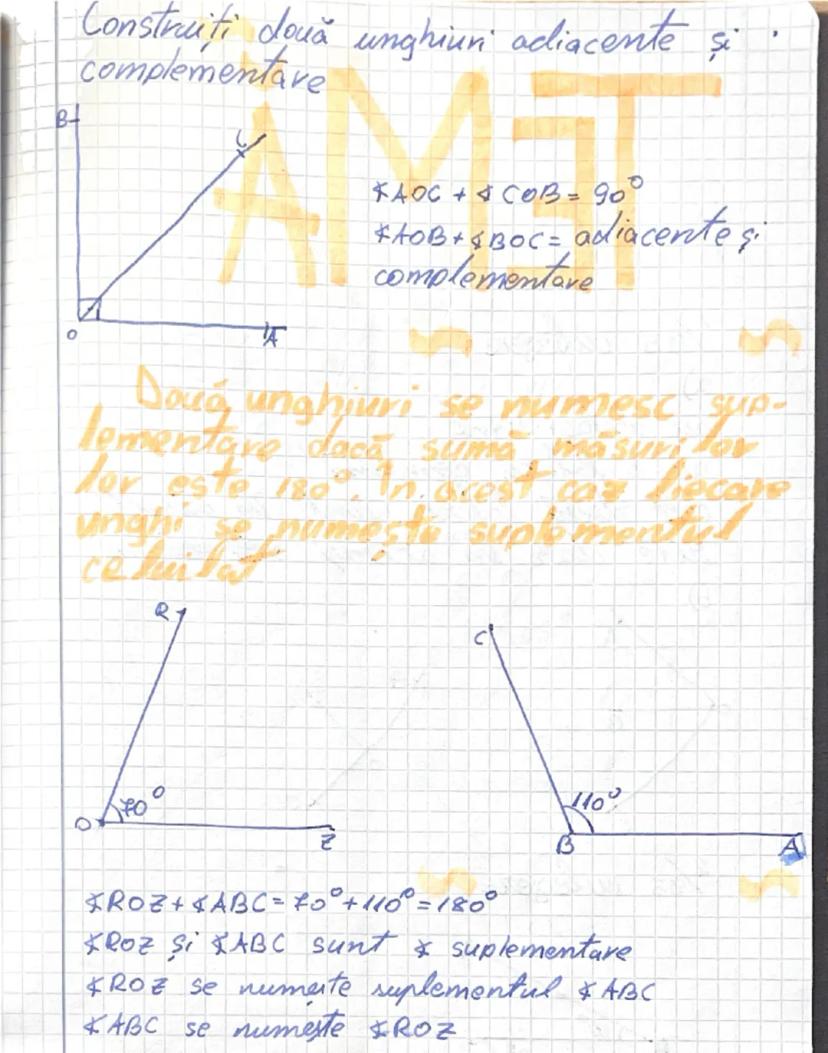 Construiți două unghiuri adiacente și
complementare
TEMA
B
C
O
A
∢AOC + ∢COB = 90°
∢AOB + ∢BOC = adiacente și
complementare
Două unghiuri se numesc sup-
lementare dacă sumă măsurilor
lor este 180°. În acest caz fiecare
unghi se numește suplementul
celuilat
R
O
70°
Z
C
110°
B
A
∢ROZ + ∢ABC = 70° + 110° = 180°
∢ROZ și ∢ABC sunt ∢ suplementare
∢ROZ se numește suplementul ∢ABC
∢ABC se numește ∢ROZ